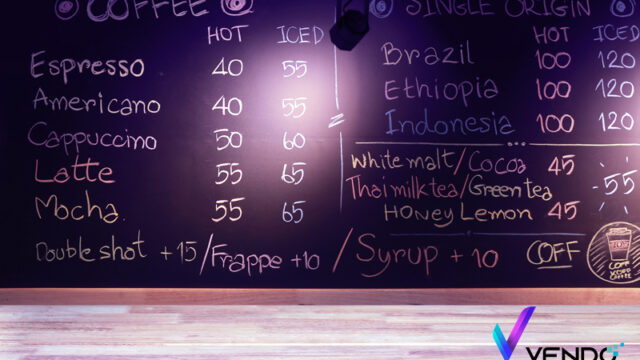 COFFEE
HOT ICED
Espresso 40 55
Americano 40 55
Cappuccino 50 60
Latte 55 65
Mocha 55 65
SINGLE ORIGIN
HOT ICED
Brazil 100 120
Ethiopia 100 120
Indonesia 100 120
White malt/Cocoa 45
Thai milk tea/Green tea 55
Honey Lemon 45
Double shot +15/Frappe +10/Syrup +10 COFF
VENDO